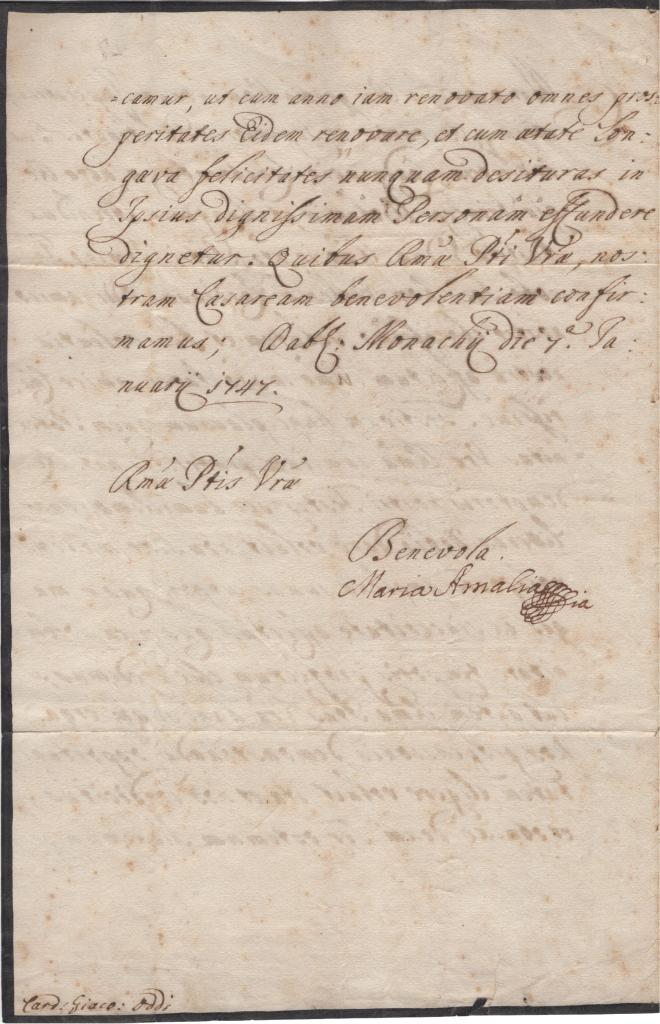 =camur, ut cum anno iam renovato omnes pros=
peritates Eidem renovare, et cum ætate lon:
gæva felicitates nunquam desituras in
Ipsius dignissimam Personam effundere
dignetur. Quibus Rmæ Pti Vræ, nos:
tram Cæsaream benevolentiam confir
mamus; Dab[.]: Monachij die 7ª. Ja:
nuarij 1747.
Rmæ Ptis Vræ
Benevola.
Maria Amalia
Card: Giaco: Oddi